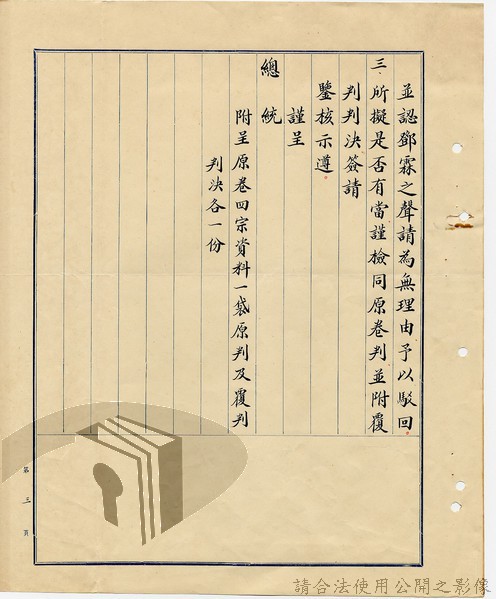 並認鄧霖之聲請為無理由予以駁回。
三、所擬是否有當謹檢同原卷判並附覆
判判決簽請
鑒核示遵。
謹呈
總統
附呈原卷四宗資料一袋原判及覆判
判決各一份
第三頁
請合法使用公開之影像